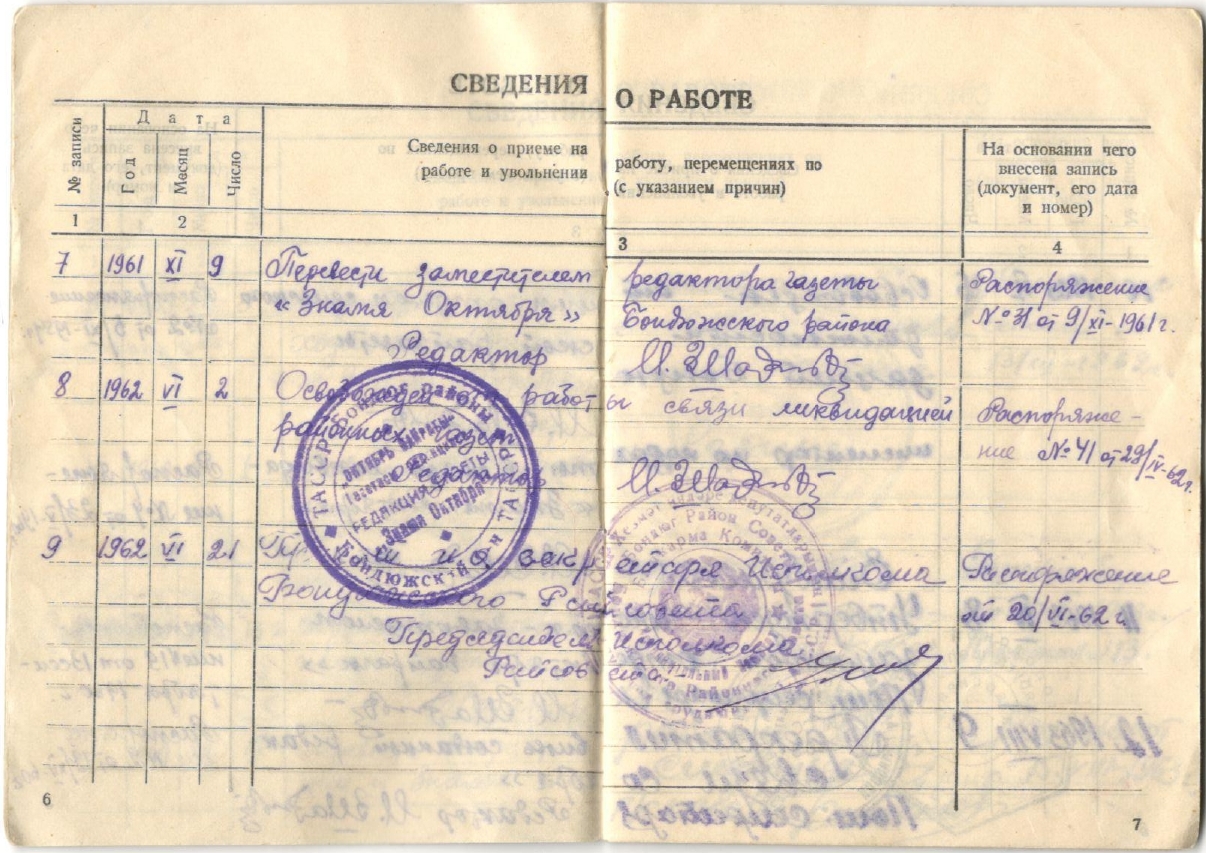 СВЕДЕНИЯ О РАБОТЕ
№ записи
Дата
Год
Месяц
Число
Сведения о приеме на работу, перемещениях по
работе и увольнении (с указанием причин)
На основании чего
внесена запись
(документ, его дата
и номер)
1 2 3 4
7 1961 XI 9 Перевести заместителем редактора газеты Распоряжение
«Знамя Октября» Бондюжского района №31 от 9/XI-1961 г.
Редактор
8 1962 VI 2 Освобожден от работы связи ликвидацией Распоряже-
районных газет ние №41 от 29/IV-62г.
Редактор
9 1962 VI 21 и.о. секретаря Исполкома Распоряжение
Бондюжского Райсовета от 20/VI-62 г.
Председатель Исполкома
Райсовета
ТАССР Бондюг районы
БОНДЮЖСКИЙ
РЕДАКЦИЯ ГАЗЕТЫ
Знамя Октября
6
7